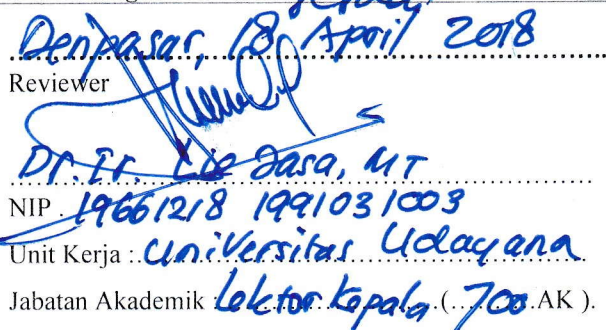 Denpasar, 18 April 2018
Reviewer
Dr. Ir. Lie Jasa, MT
NIP. 19661218 1991031003
Unit Kerja : Universitas Udayana
Jabatan Akademik Lektor Kepala (...700.AK ).